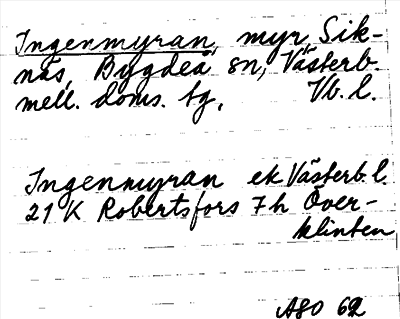 Ingenmyran, myr, Sik-
näs, Bygdeå sn, Västerb.
mell. doms. tg, Vb. l.
Ingenmyran ek Västerb. l.
21 K Robertsfors 7h Över-
klinten
ASO 62